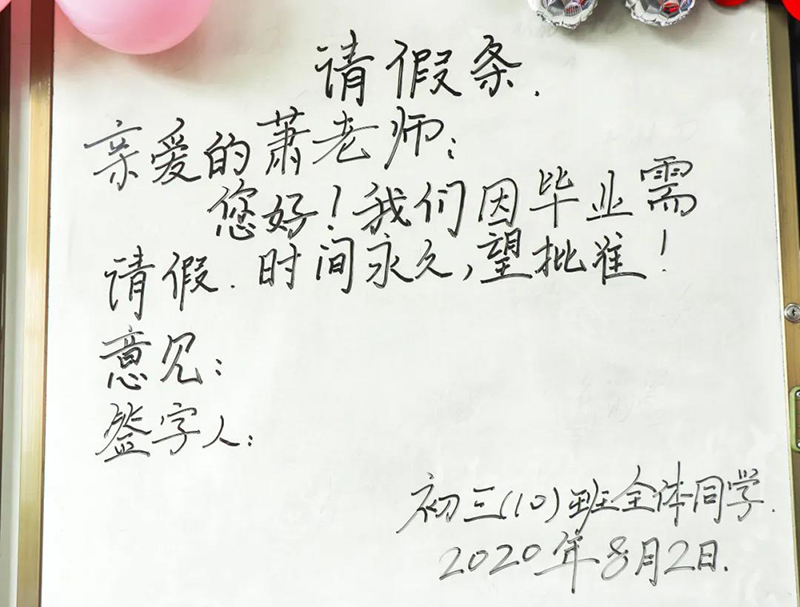 请假条.
亲爱的萧老师：
您好！我们因毕业需
请假.时间永久,望批准！
意见：
签字人：
初三(10)班全体同学.
2020年8月2日.